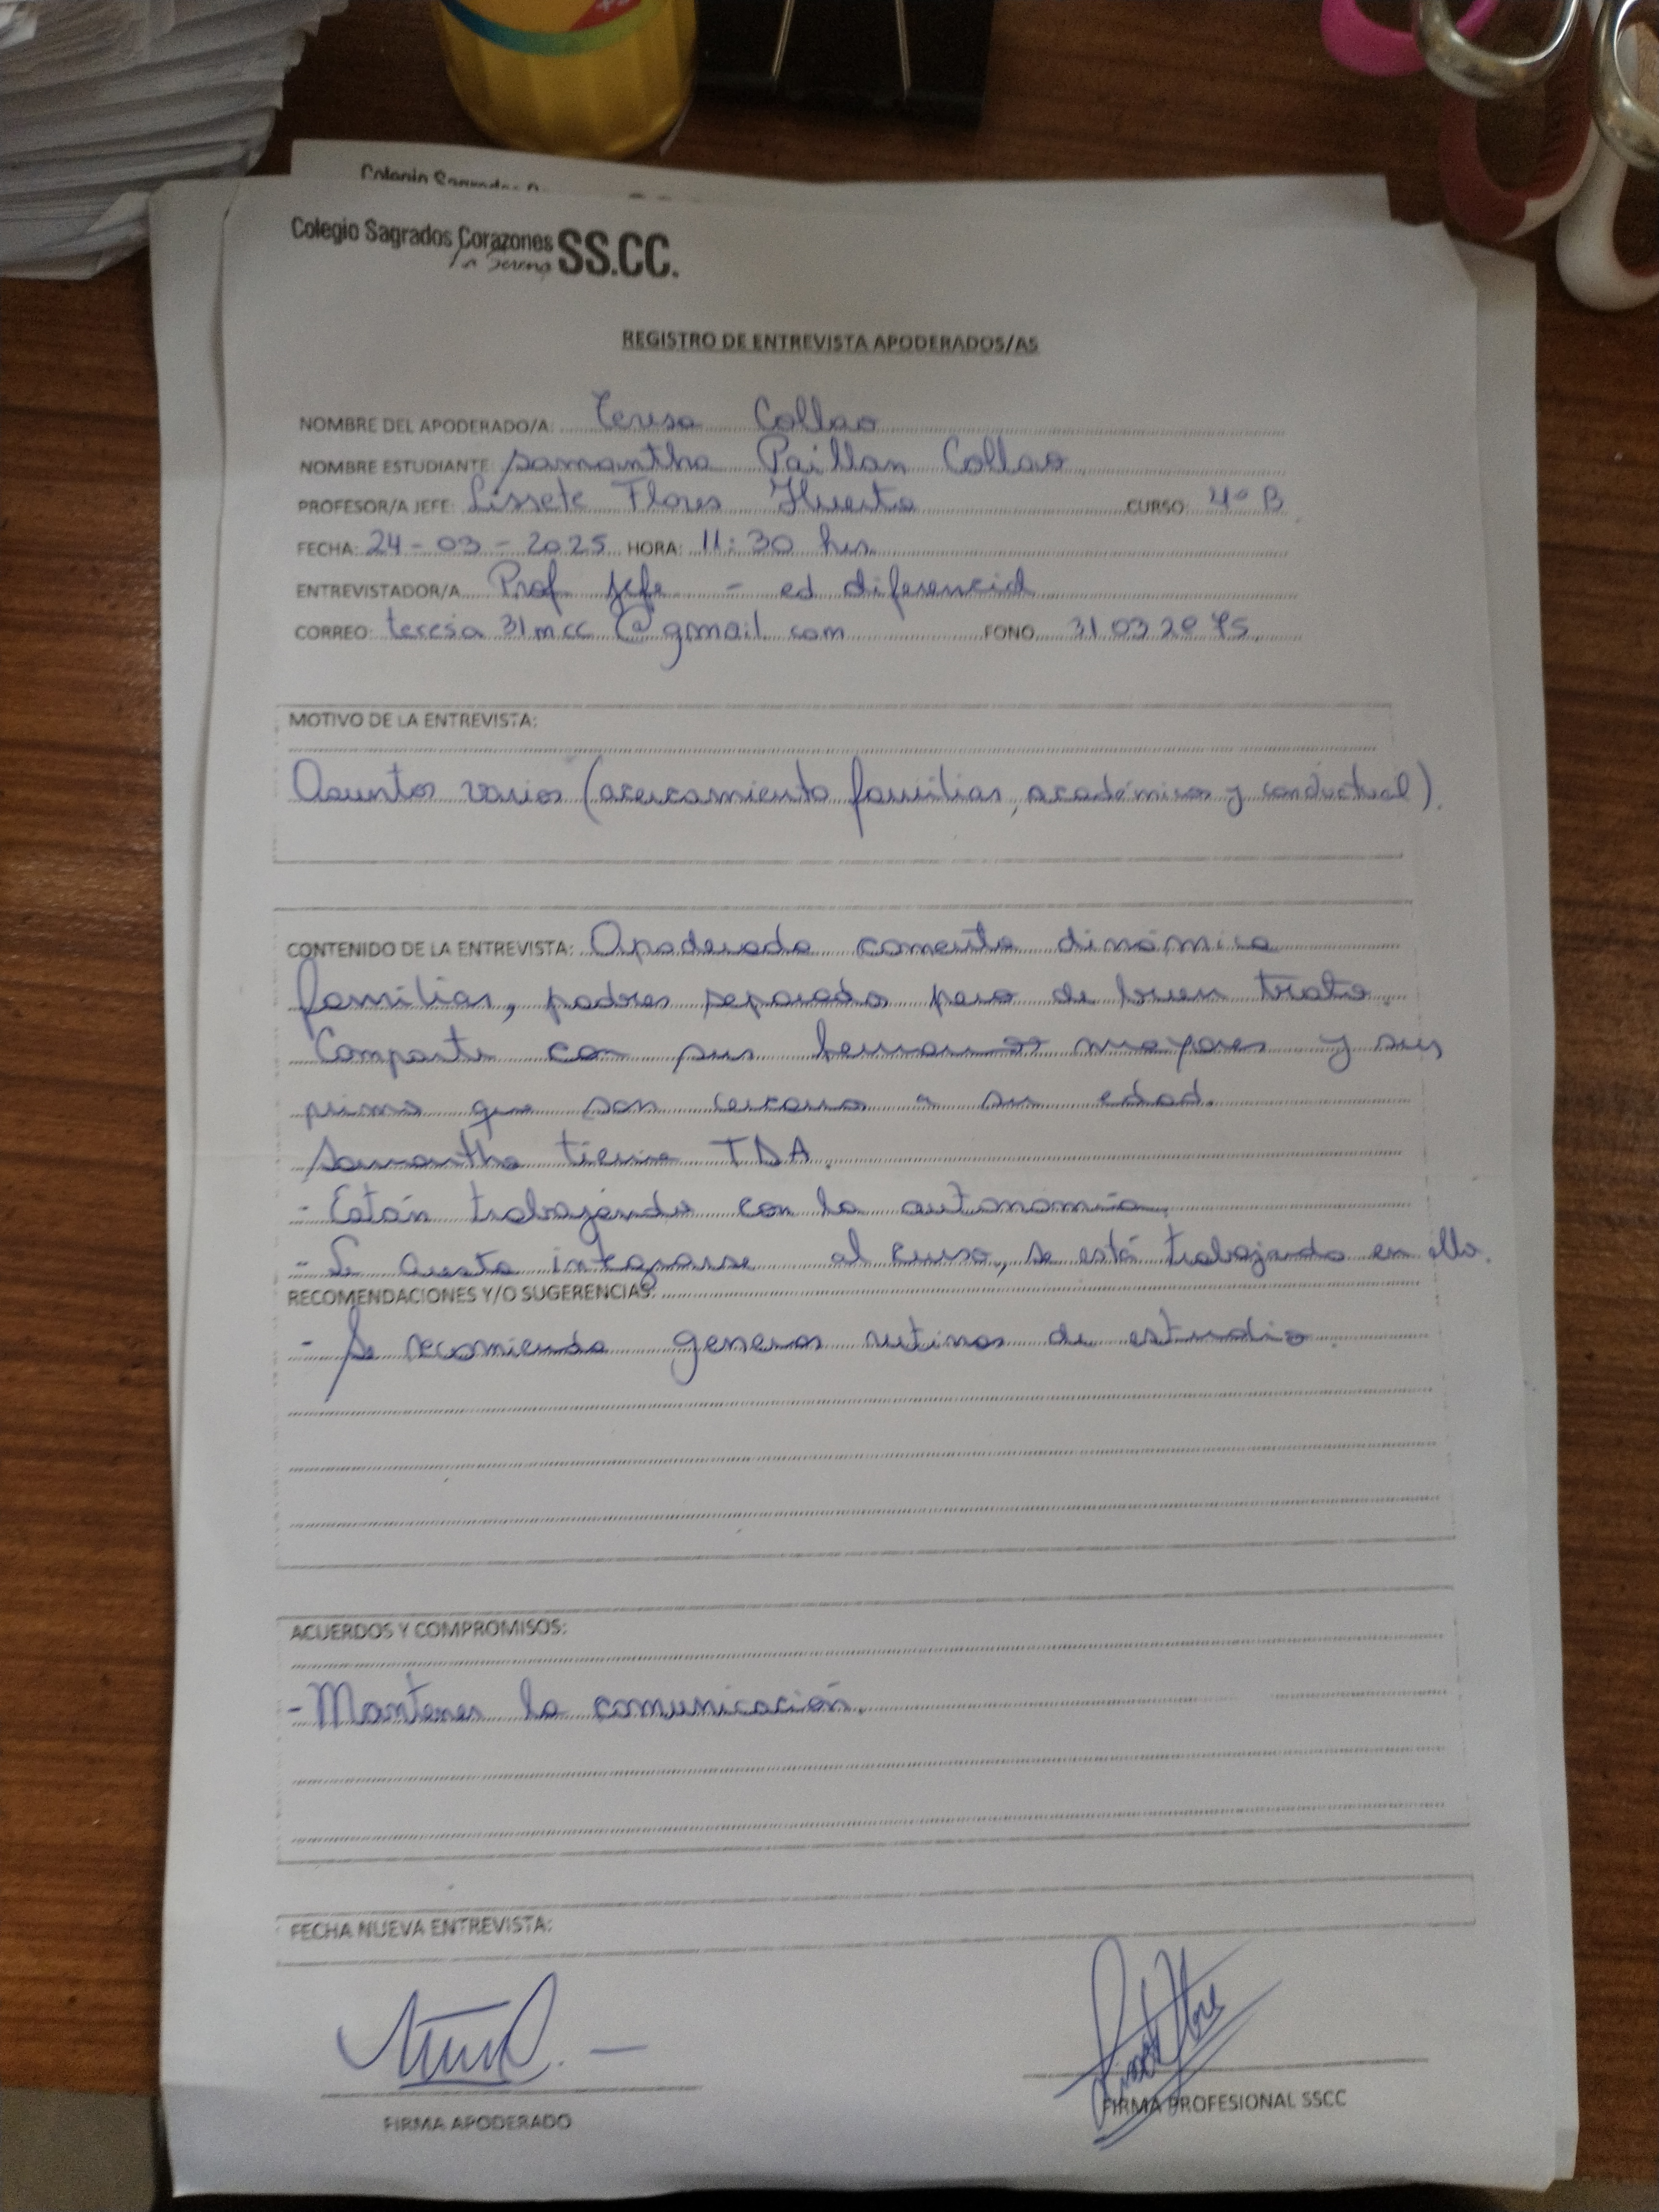 Colegio Sagrados
Colegio Sagrados Corazones SS.CC.
La Serena
REGISTRO DE ENTREVISTA APODERADOS/AS
NOMBRE DEL APODERADO/A: Teresa Collao
NOMBRE ESTUDIANTE: Samantha Paillan Collao
PROFESOR/A JEFE: Lissete Flores Huerta CURSO: 4° B
FECHA: 24-03-2025 HORA: 11:30 hrs.
ENTREVISTADOR/A Prof jefe - ed diferencial
CORREO: teresa31mcc@gmail.com FONO 31 03 20 75
MOTIVO DE LA ENTREVISTA:
Asuntos varios (acercamiento familiar, académicos y conductual).
CONTENIDO DE LA ENTREVISTA: Apoderada comenta dinámica
familiar, padres separados pero de buen trato.
Comparte con sus hermanos mayores y sus
primos que son cercanos a su edad.
Samantha tiene TDA.
- Están trabajando con la autonomía.
- Le cuesta integrarse al curso, se está trabajando en ello.
RECOMENDACIONES Y/O SUGERENCIAS:
- Se recomienda generar rutinas de estudio.
ACUERDOS Y COMPROMISOS:
- Mantener la comunicación.
FECHA NUEVA ENTREVISTA:
FIRMA APODERADO
FIRMA PROFESIONAL SSCC